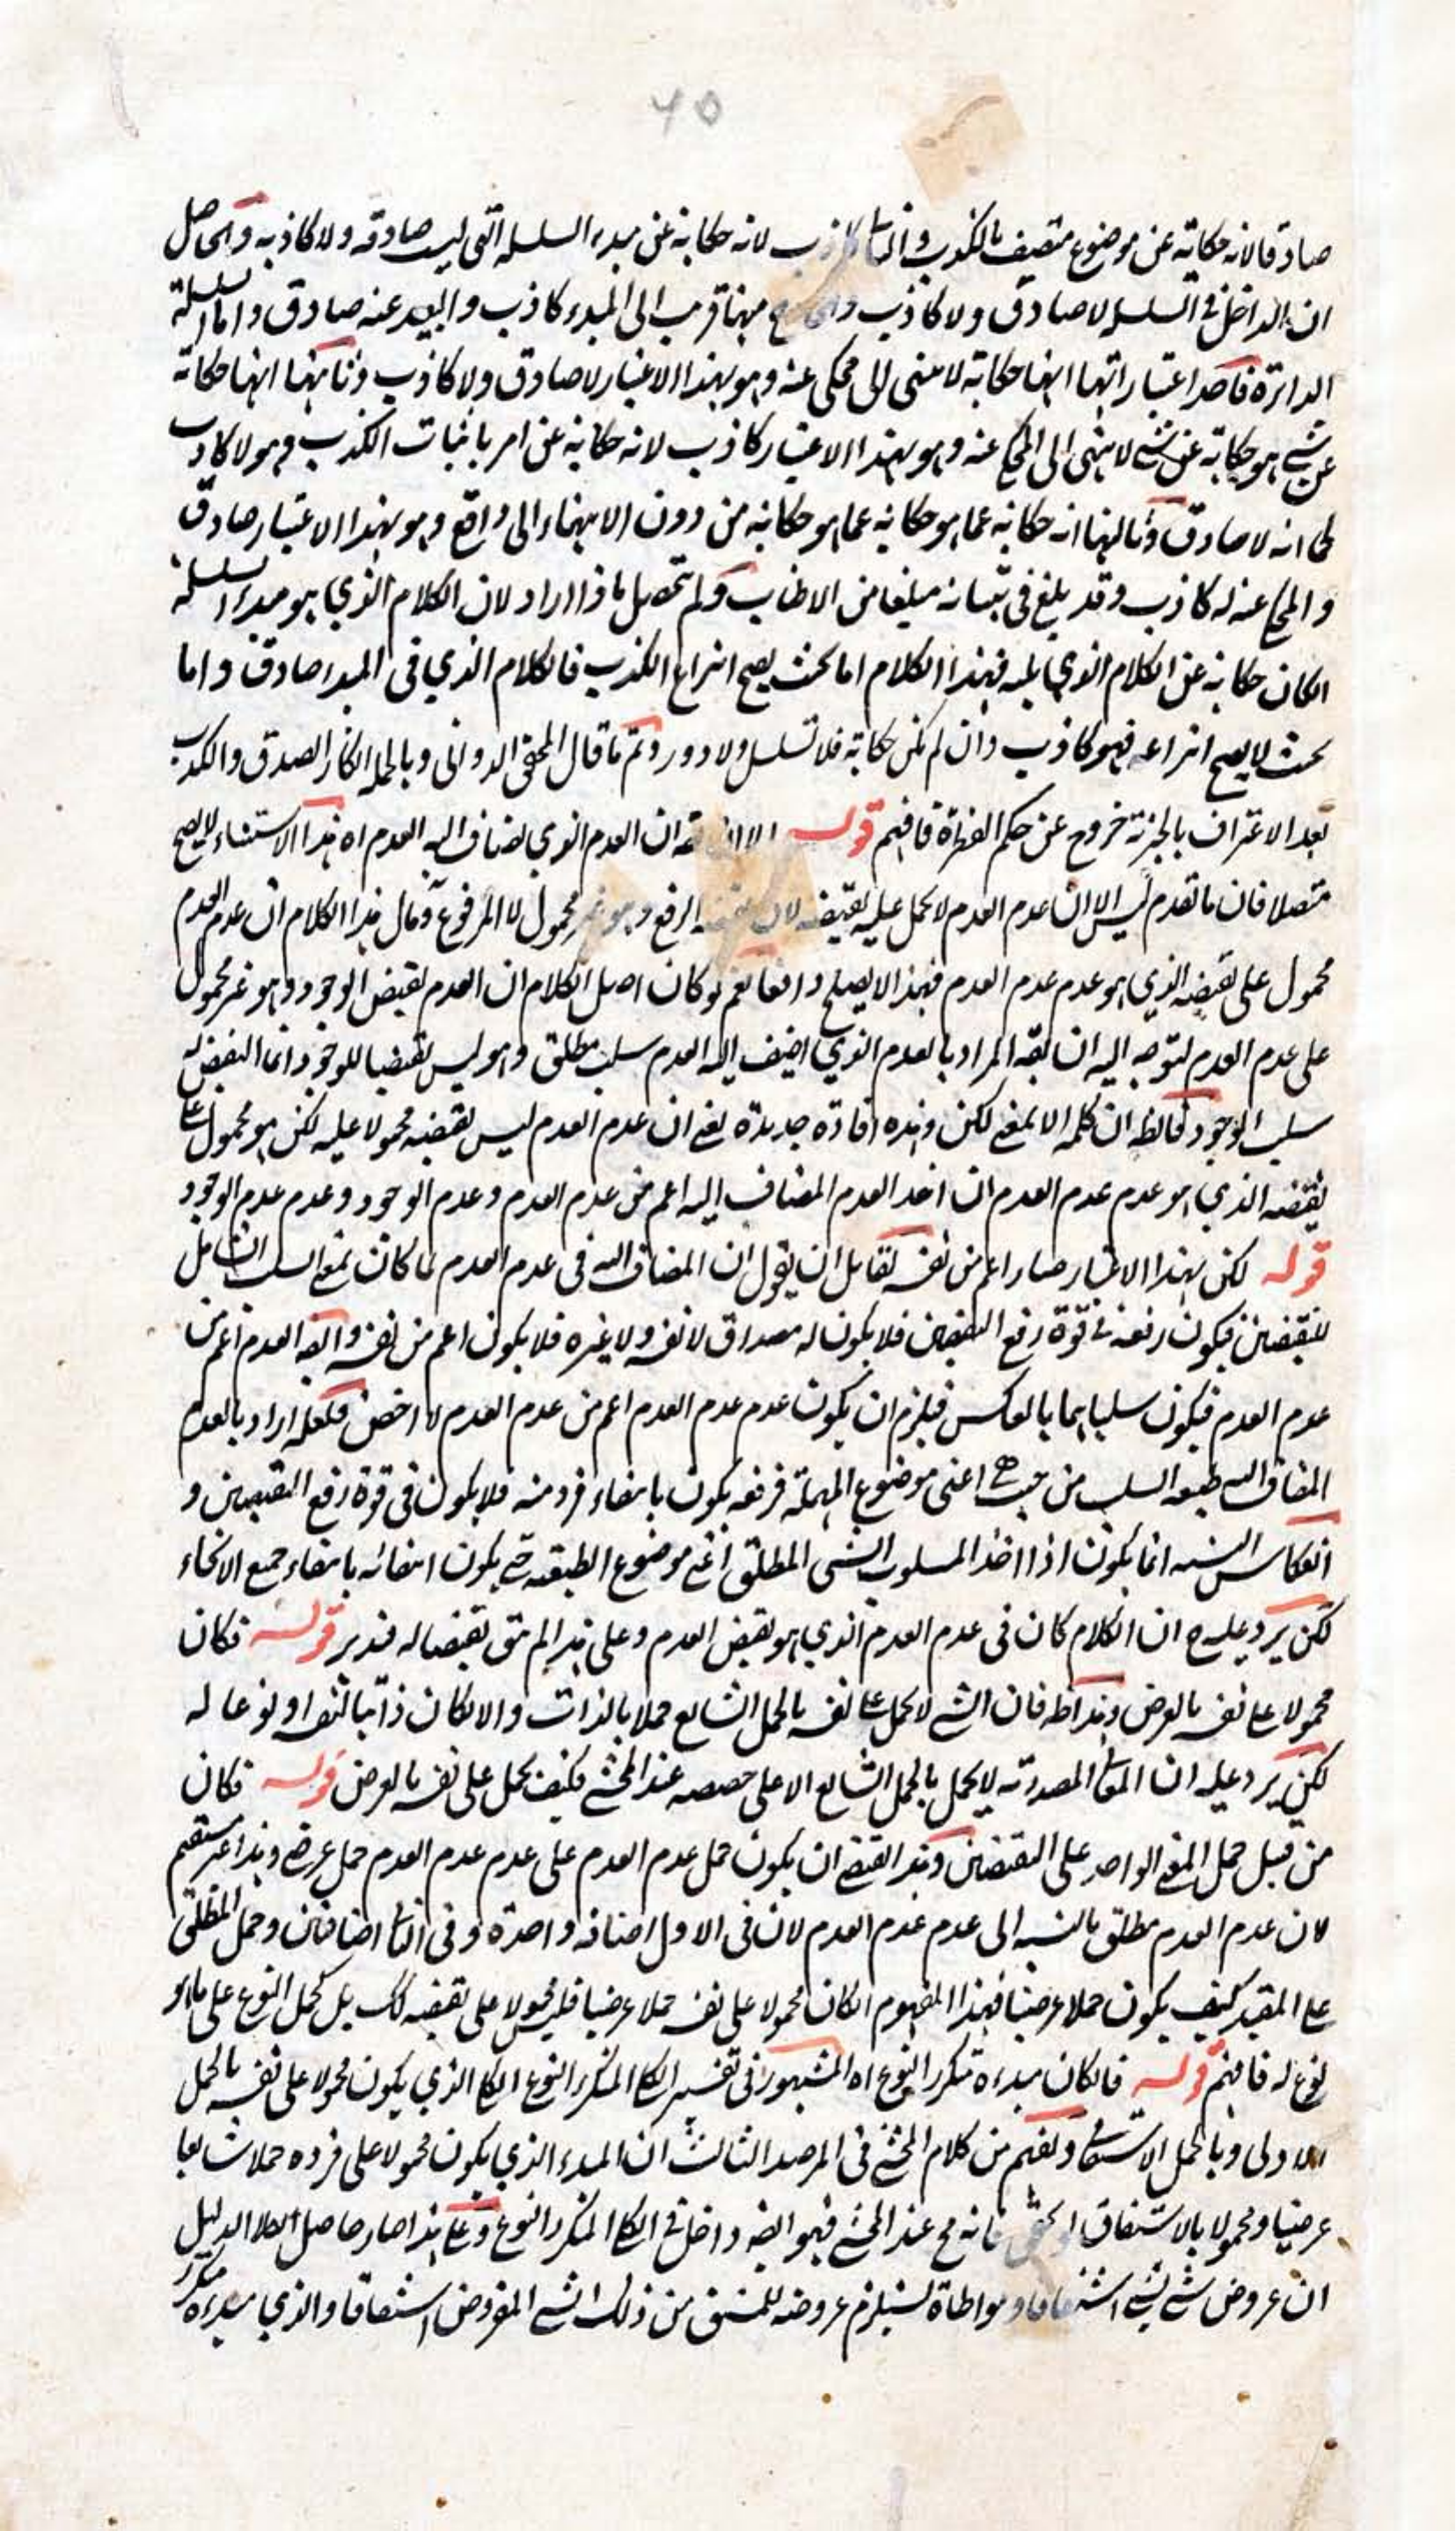 ٦٥
صادقا لانه حكاية عن موضوع متصف بالكذب والثانى كاذب لانه حكاية عن مبدء السلسلة التى ليست صادقة ولا كاذبة والحاصل
ان الداخل فى السلسلة لا صادق ولا كاذب والخارج منها قريب الى المبدء كاذب والبعيد عنه صادق واما السلسلة
الدائرة فاحد اعتباراتها انها حكاية لا تنتهى الى محكى عنه وهو بهذا الاعتبار لا صادق ولا كاذب وثانيها انها حكاية
عن شئ هو حكاية عن شئ لا ينتهى الى المحكى عنه وهو بهذا الاعتبار كاذب لانه حكاية عن امر باثبات الكذب وهو لا كاذب
كما انه لا صادق وثالثها انه حكاية عما هو حكاية عما هو حكاية من دون الانتهاء الى واقع وهو بهذا الاعتبار صادق
والمحكى عنه له كاذب وقد بلغ فى تبيانه مبلغا من الاطناب ولم يتحصل ماذا اراد لان الكلام الذي هو مبدء السلسلة
ان كان حكاية عن الكلام الذي يليه فهذا الكلام اما بحيث يصح انتزاع الكذب فالكلام الذي فى المبدء صادق واما
بحيث لا يصح انتزاعه فهو كاذب وان لم يكن حكاية فلا تسلسل ولا دور وتم ما قال المحقق الدوانى وبالجملة انكار الصدق والكذب
بعد الاعتراف بالخبرية خروج عن حكم الفطرة فافهم قوله الا ان يقه ان العدم الذي يضاف اليه العدم اه هذا الاستثناء لا يصح
متصلا فان ما تقدم ليس الا ان عدم العدم لا يحمل عليه نقيضه لان نقيضه الرفع وهو غير محمول لا المرفوع ومال هذا الكلام ان عدم العدم
محمول على نقيضه الذي هو عدم عدم العدم فهذا لا يصلح دافعا نعم لو كان اصل الكلام ان العدم نقيض الوجود وهو غير محمول
على عدم العدم لتوجه اليه ان يقه المراد بالعدم الذي اضيف اليه العدم سلب مطلق وهو ليس نقيضا للوجود انما النقيض له
سلب الوجود فالظ ان كلمة الا بمعنى لكن وهذه افادة جديدة يعنى ان عدم العدم ليس نقيضه محمولا عليه لكن هو محمول على
نقيضه الذي هو عدم عدم العدم ان اخذ العدم المضاف اليه اعم من عدم العدم وعدم الوجود وعدم عدم الوجود
قوله لكن بهذا الاعتبار صار اعم من نفسه لقائل ان يقول ان المضاف اليه فى عدم العدم لما كان بمعنى السلب الشامل
للنقيضين فيكون رفعه فى قوة رفع النقيضين فلا يكون له مصداق لا نفسه ولا غيره فلا يكون اعم من نفسه وايضه العدم اعم من
عدم العدم فيكون سلبا هما بالعكس فيلزم ان يكون عدم عدم العدم اعم من عدم العدم لا اخص فلعله اراد بالعدم
المضاف اليه طبيعة السلب من حيث هى اعنى موضوع المهملة فرفعه يكون بانتفاء فرد منه فلا يكون فى قوة رفع النقيضين و
انعكاس النسبة انما يكون اذا اخذ المسلوب الشئ المطلق اعنى موضوع الطبيعة حتى يكون انتفائه بانتفاء جميع الانحاء
لكن يرد عليه ح ان الكلام كان فى عدم العدم الذي هو نقيض العدم وعلى هذا لم يبق نقيضا له فتدبر قوله فكان
محمولا على نفسه بالعرض وهذا ظ فان الشئ لا يحمل على نفسه بالحمل الشايع حملا بالذات والا لكان ذاتيا لنفسه او نوعا له
لكن يرد عليه ان المعانى المصدرية لا يحمل بالحمل الشايع الا على حصصه عند المحشى فكيف يحمل على نفسه بالعرض قوله فكان
من قبيل حمل المعنى الواحد على النقيضين وهذا اقتضى ان يكون حمل عدم العدم على عدم عدم العدم حمل عرضى وهذا غير مستقيم
لان عدم العدم مطلق بالنسبة الى عدم عدم العدم لان فى الاول اضافة واحدة وفى الثانى اضافتان وحمل المطلق
على المقيد كيف يكون حملا عرضيا فهذا المفهوم ان كان محمولا على نفسه حملا عرضيا فليس محمولا على نقيضه كك بل كحمل النوع على ما هو
نوع له فافهم قوله فان كان مبدءه متكرر النوع اه المشهور فى تفسير الكلى المتكرر النوع الكلى الذي يكون محمولا على نفسه بالحمل
الاولى وبالحمل الاشتقاقى ويفهم من كلام المحشى فى المرصد الثالث ان المبدء الذي يكون محمولا على فرده حملا شايعا
عرضيا ومحمولا بالاشتقاق الحقيقى فانه مح عند المحشى فهو ايضه داخل فى الكلى المتكرر النوع وعلى هذا صار حاصل اصلا الدليل
ان عروض شئ لشئ اشتقاقا ومواطاة يستلزم عروضه للمشتق من ذلك الشئ المفروض اشتقاقا والذي مبدءه متكرر